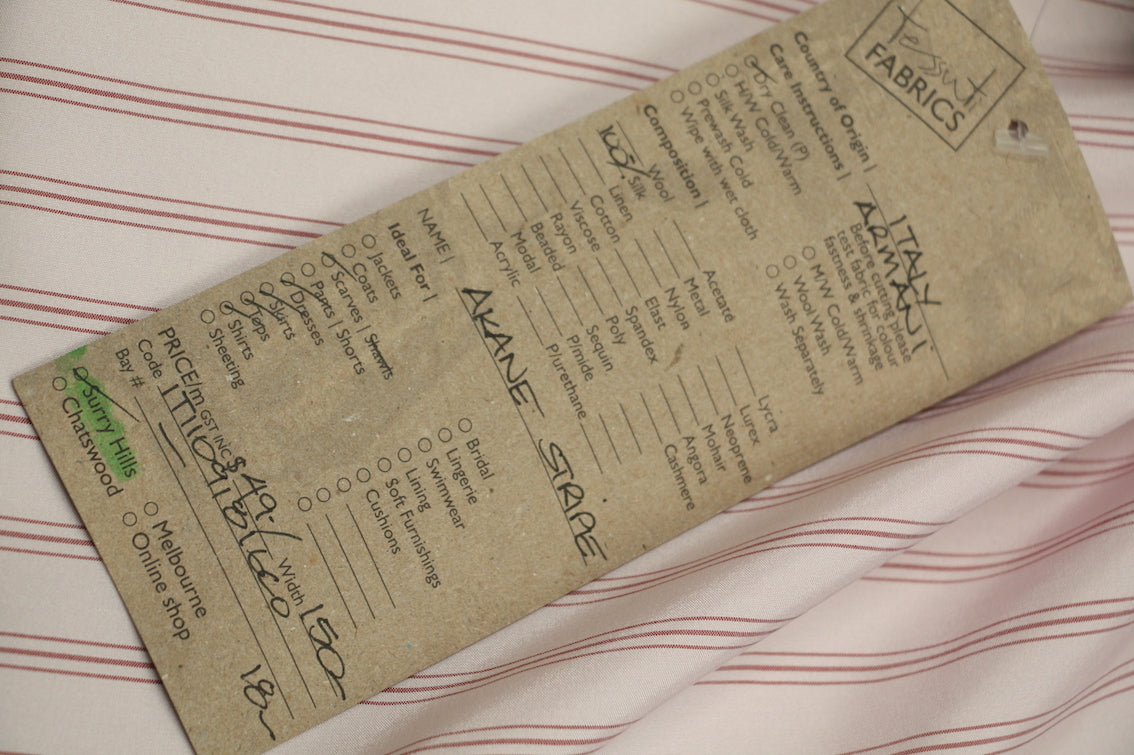 tessuti
FABRICS
Country of Origin | ITALY
ARMANI
Care Instructions |
Before cutting please
test fabric for colour
fastness & shrinkage
Dry Clean (P)
H/W Cold/Warm
Silk Wash
Prewash Cold
Wipe with wet cloth
M/W Cold/Warm
Wool Wash
Wash Separately
Composition |
Wool
100% Silk
Linen
Cotton
Viscose
Rayon
Beaded
Modal
Acrylic
Acetate
Metal
Nylon
Elast
Spandex
Poly
Sequin
P/mide
P/urethane
Lycra
Lurex
Neoprene
Mohair
Angora
Cashmere
NAME | AKANE STRIPE
Ideal For |
Jackets
Coats
Scarves | Shawls
Pants | Shorts
Dresses
Skirts
Tops
Shirts
Sheeting
Bridal
Lingerie
Swimwear
Lining
Soft Furnishings
Cushions
PRICE/m GST INC $49.- Width 150
Code
Bay #
18
Surry Hills
Chatswood
Melbourne
Online shop